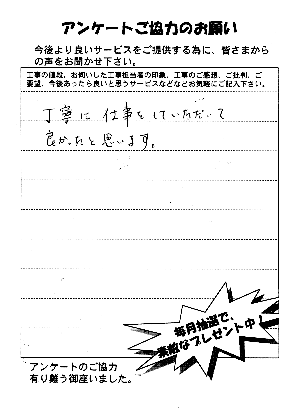 アンケートご協力のお願い
今後より良いサービスをご提供する為に、皆さまから
の声をお聞かせ下さい。
工事の値段、お伺いした工事担当者の印象、工事のご感想、ご批判、ご
要望、今後あったら良いと思うサービスなどなどお気軽にご記入下さい。
丁寧に仕事をしていただいて
良かったと思います。
毎月抽選で、
素敵なプレゼント中！
アンケートのご協力
有り難う御座いました。